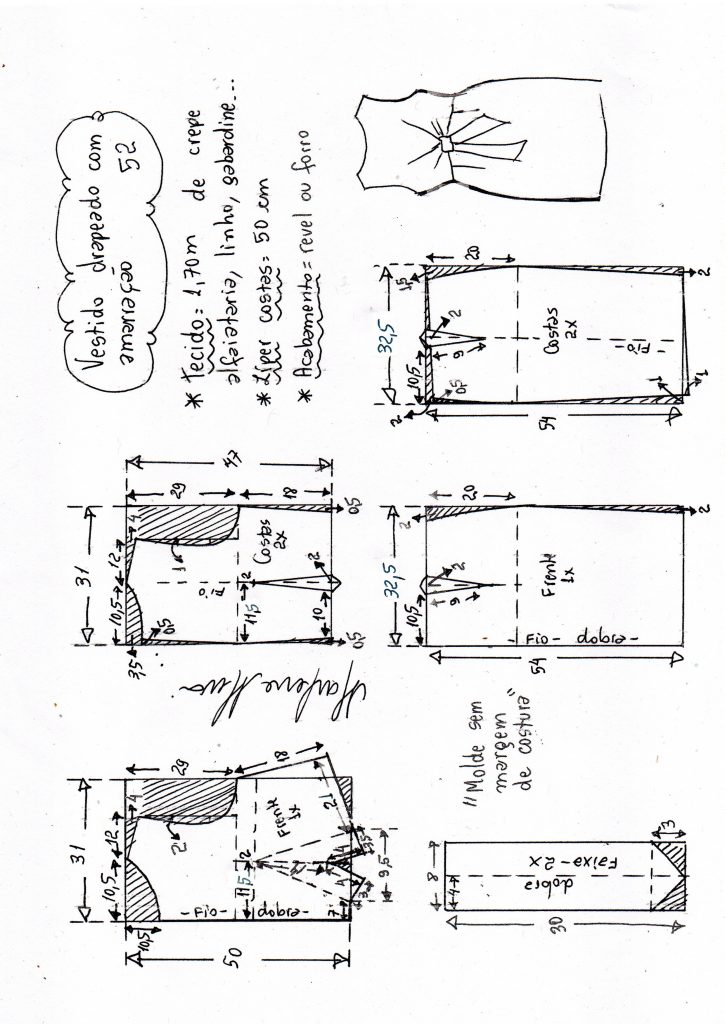 Vestido drapeado com a
amarração 52
* Tecido = 1,70m de crepe
alfaiataria, linho, gabardine...
* Zíper costas = 50 cm
* Acabamento = revel ou forro
31
10,5
12
4
29
10,5
2
50
11,5
2
Frente
1x
- Fio - dobra -
18
21
7
3
4
4
3,5
9,5
31
10,5
12
4
29
47
3,5
0,5
1
Fio
Costas
2x
11,5
2
18
10
2
0,5
0,5
Marlene Mukai
8
4
dobra
Faixa - 2x
30
3
"Molde sem
margem
de costura"
32,5
10,5
2
20
9
2
Frente
1x
- Fio - dobra -
54
2
32,5
10,5
1,5
20
2
0,5
9
2
Costas
2x
- Fio -
54
1
1
2